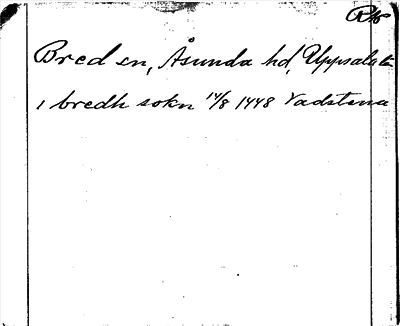 Bred sn, Åsunda hd, Uppsala län
i bredh sokn 14/8 1448 Vadstena